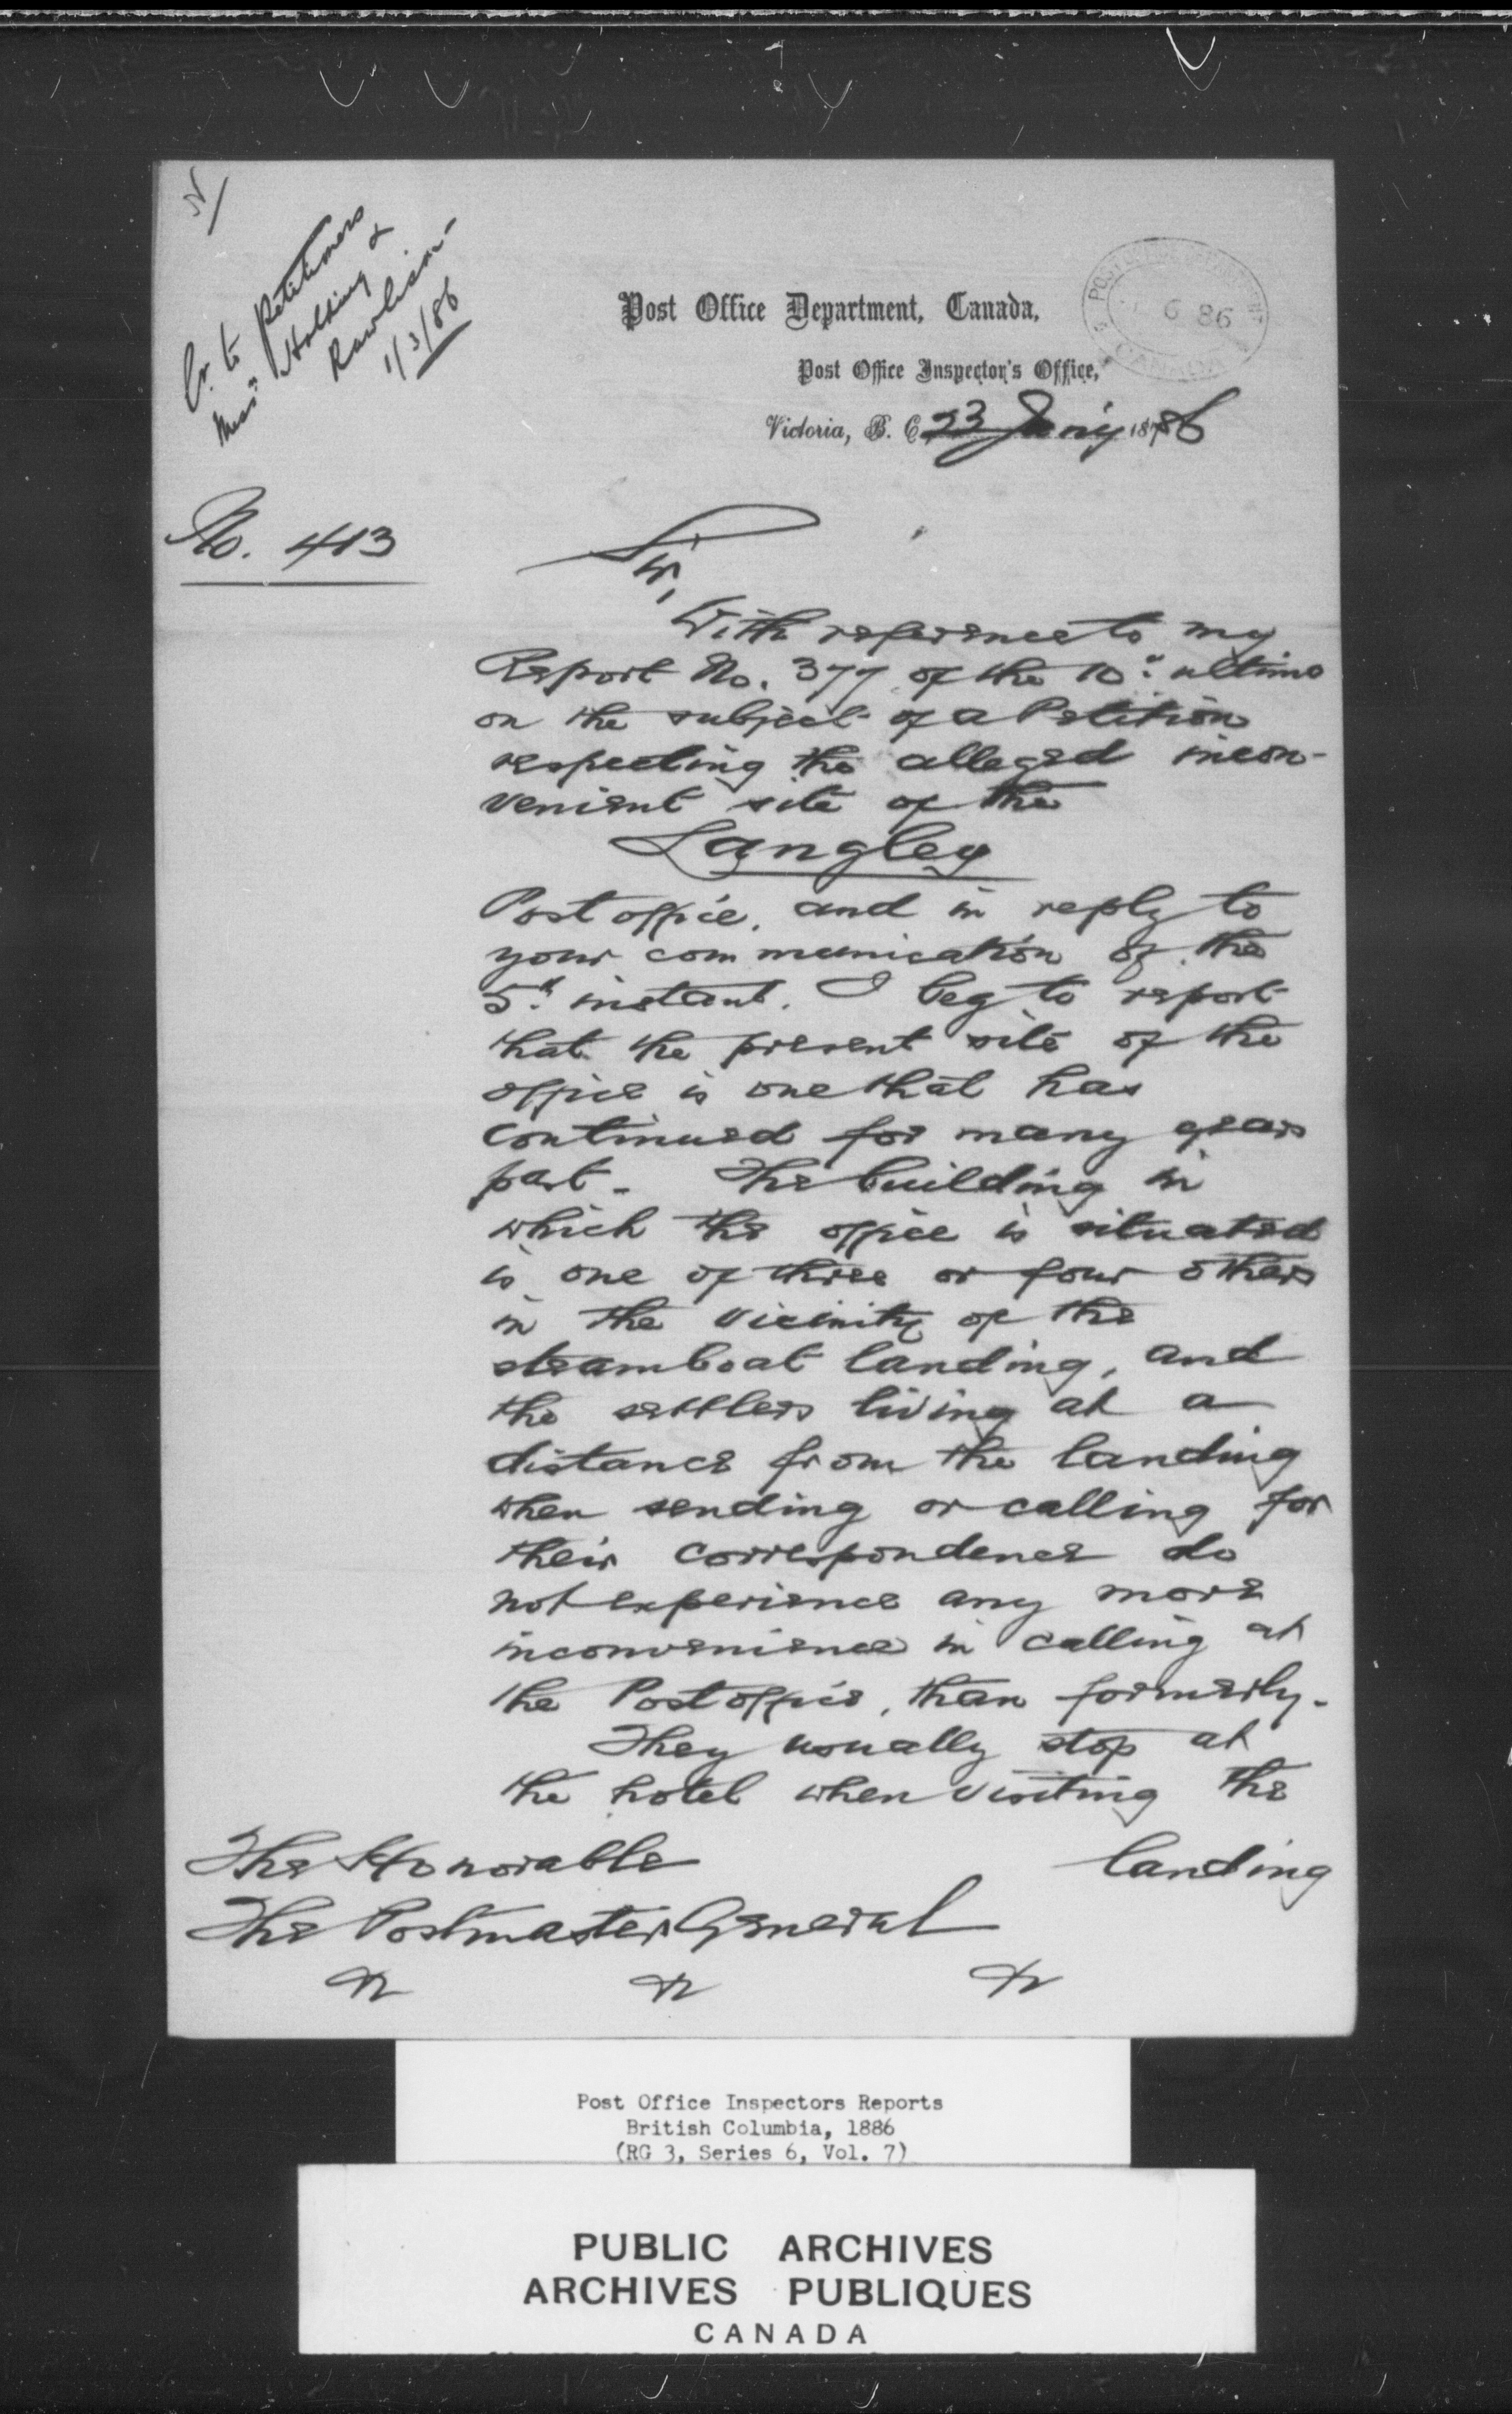 to Petitioners
Mess" Holding &
Rawlison -
1/3/86
Post Office Department, Canada,
6 86
CANADA
Post Office Inspector's Office,
Victoria, B. C. 23 Jan'y 1886
No. 413
Sir,
With reference to my
Report No. 377 of the 10" ultimo
on the subject of a Petition
respecting the alleged incon-
venient site of the
Langley
Post office, and in reply to
your communication of the
5" instant. I beg to report
that the present site of the
office is one that has
continued for many years
past - The building in
which the office is situated
is one of three or four others
in the vicinity of the
steamboat landing, and
the settlers living at a
distance from the landing
when sending or calling for
their correspondence do
not experience any more
inconvenience in calling at
the Post office, than formerly.
They usually stop at
the hotel when visiting the
landing
The Honorable
The Postmaster General
Post Office Inspectors Reports
British Columbia, 1886
(RG 3, Series 6, Vol. 7)
PUBLIC ARCHIVES
ARCHIVES PUBLIQUES
CANADA